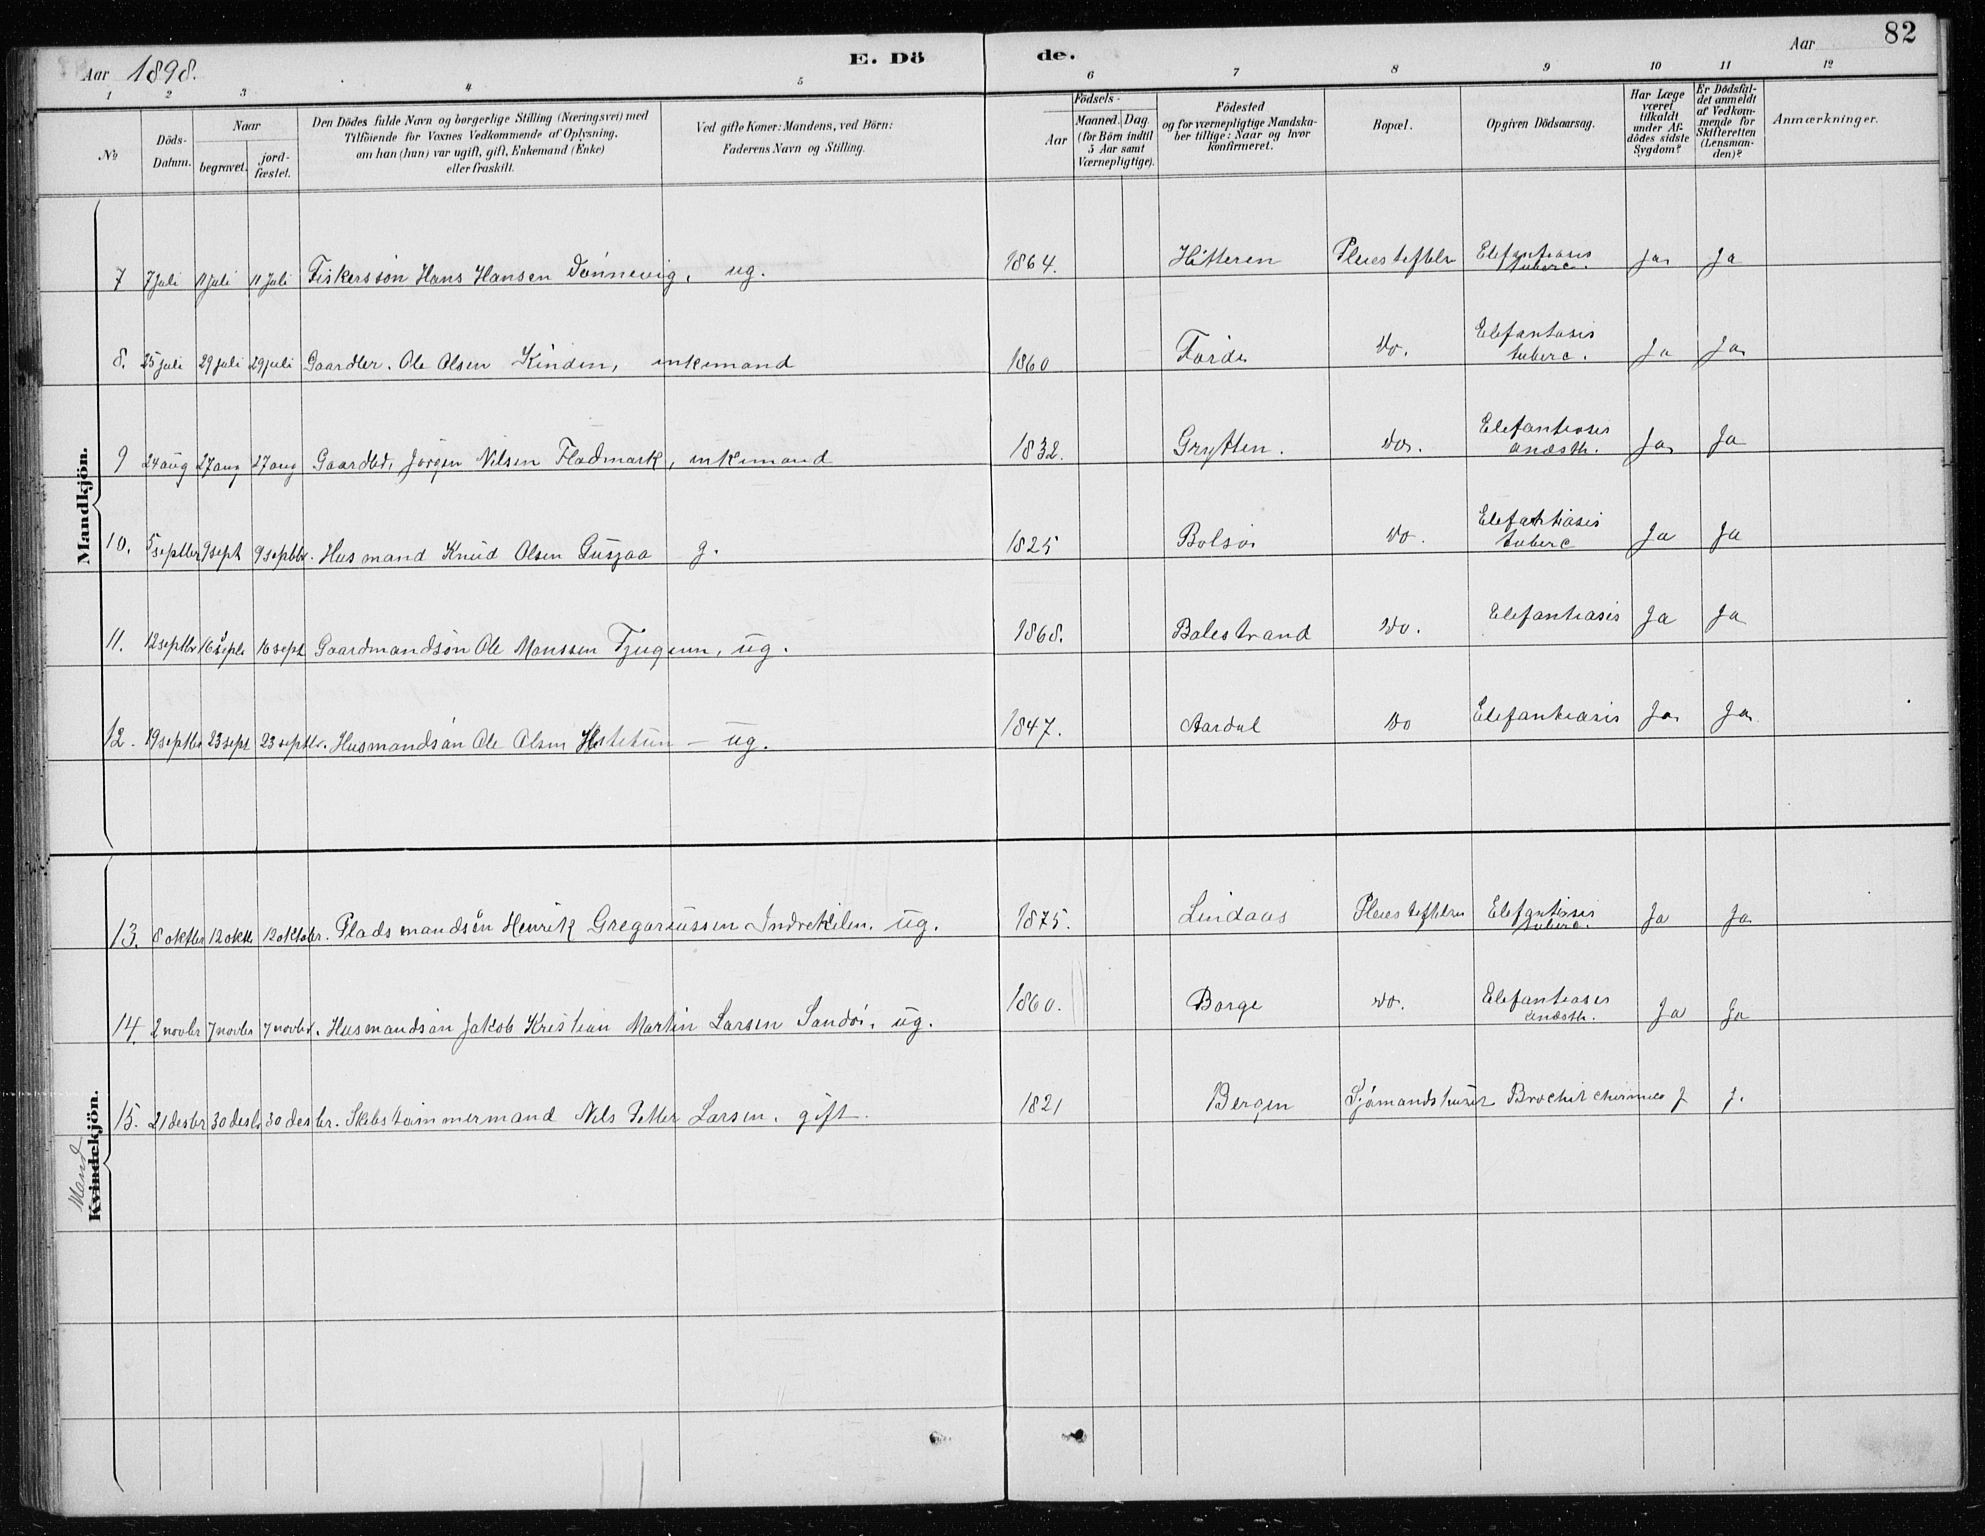 82
Aar 1898. E. Dö de. Aar
1 2 3 4 5 6 7 8 9 10 11 12
№
Döds-Datum.
Naar
begravet.
jord-fæstet.
Den Dödes fulde Navn og borgerlige Stilling (Næringsvei) med
Tilföiende for Voxnes Vedkommende af Oplysning,
om han (hun) var ugift, gift, Enkemand (Enke)
eller fraskilt.
Ved gifte Koner: Mandens, ved Börn:
Faderens Navn og Stilling.
Födsels-
Aar
Maaned. Dag.
(for Börn indtil
5 Aar samt
Værnepligtige).
Födested
og for værnepligtige Mandska-
ber tillige: Naar og hvor
konfirmeret.
Bopæl.
Opgiven Dödsaarsag.
Har Læge
været
tilkaldt
under Af-
dödes sidste
Sygdom?
Er Dödsfal-
det anmeldt
af Vedkom-
mende for
Skifteretten
(Lensman-
den)?
Anmærkninger.
Mandkjön.
7 7 juli 11 juli 11 juli Fiskersson Hans Hansen Dønnevig, ug. 1864. Hitteren Pleiestiftelse Elefantiasis tuberc. Ja Ja
8. 25 juli 29 juli 29 juli Gaardbr. Ole Olsen Kinden, enkemand 1860 Førde do. Elefantasis tuberc. Ja Ja
9 24 aug 27 aug 27 aug Gaardbr. Jørgen Nilsen Flodmark, enkemand 1832. Grytten. do. Elefantiasis anæsth. Ja Ja
10. 5 septbr 9 sept 9 septbr. Husmand Knud Olsen Gusjaa g. 1825 Bolsø do. Elefantiasis tuberc Ja Ja
11. 12 septbr 16 sept 16 sept Gaardmandsøn Ole Monssen Tjugum, ug. 1868. Balestrand do. Elefantiasis Ja Ja
12. 19 septbr 23 sept 23 septbr. Husmandsøn Ole Olsen Hestetun – ug. 1847. Aardal do Elefantiasis Ja Ja
13. 8 oktbr 12 oktb 12 oktobr. Pladsmandsøn Henrik Gregoriussen Indrekilen. ug. 1875. Lindaas Pleiestiftelse Elefantiasis tuberc. Ja Ja
14. 2 novbr 7 novbr 7 novbr. Husmandsøn Jakob Kristian Martin Larsen Sandø. ug. 1860. Borge do. Elefantiasis anæsth. Ja Ja
15. 21 desbr 30 desb 30 desbr. Skibstømmermand Nils Petter Larsen. gift 1821 Bergen Sjømandshuset Brochit chronica J J.
Mand
Kvindekjön.